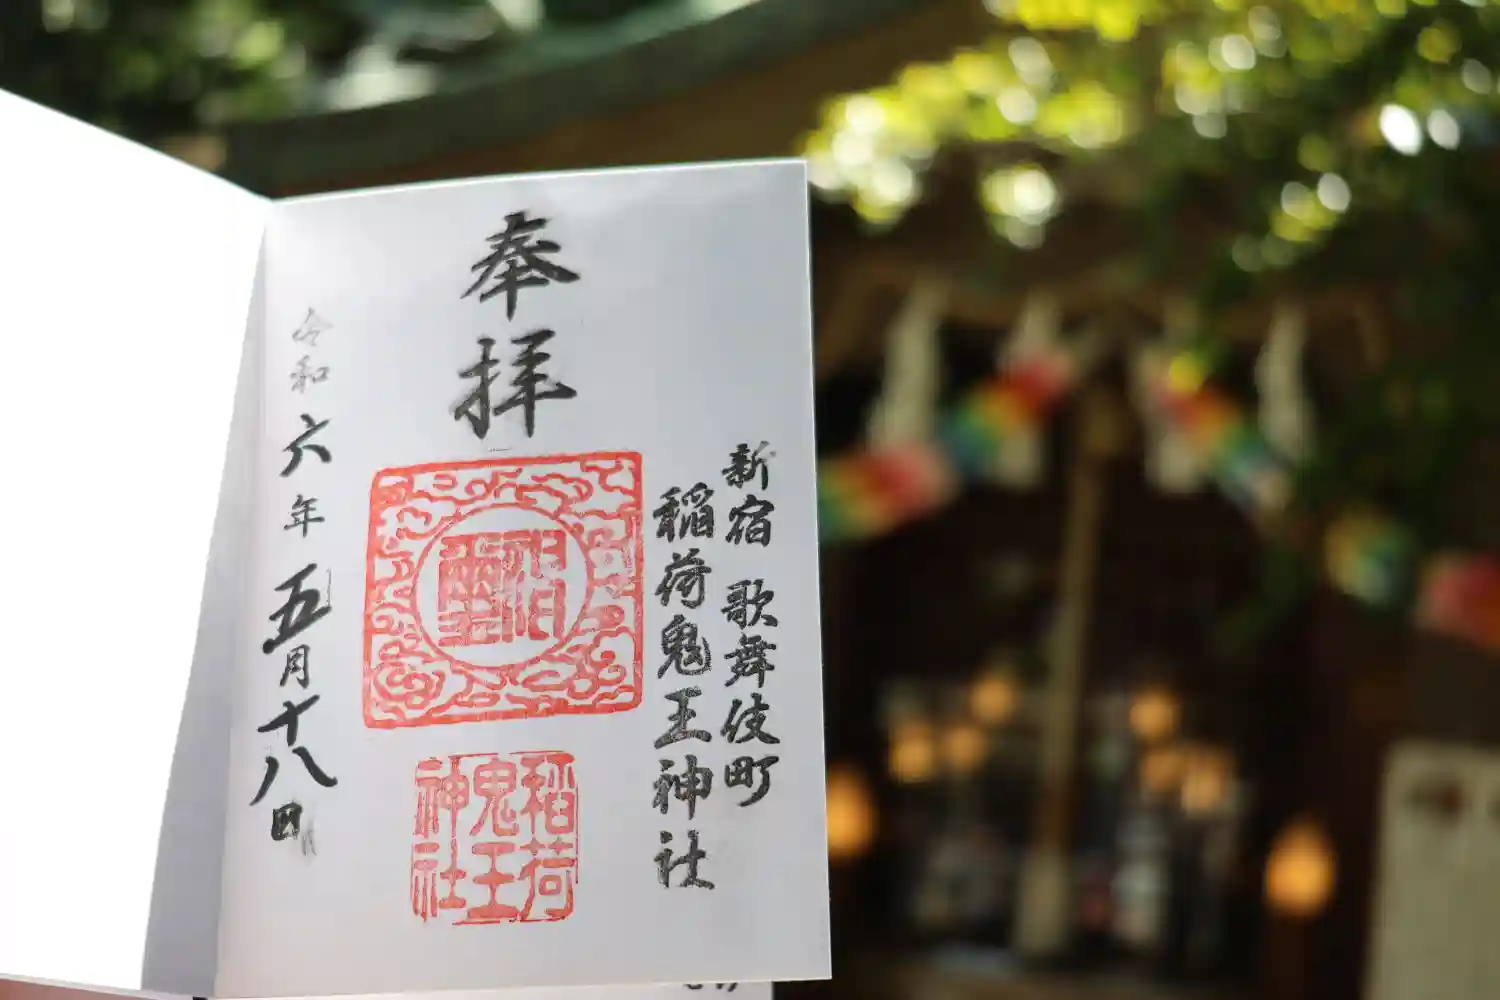 新宿 歌舞伎町
稲荷鬼王神社
奉拝
稲荷
鬼王
神社
令和六年五月十八日